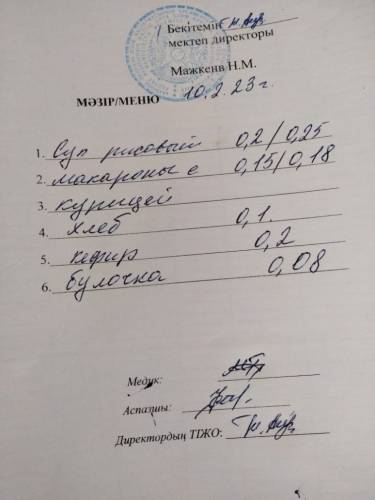 Бекітемін
мектеп директоры
Мажкенв Н.М.
10.2.23г.
МӘЗІР/МЕНЮ
1. Суп рисовый 0,2/0,25
2. макароны с 0,15/0,18
3. курицей
4. хлеб 0,1.
5. кефир 0,2
6. булочка 0,08
Медик:
Аспазшы:
Директордың ТІЖО: